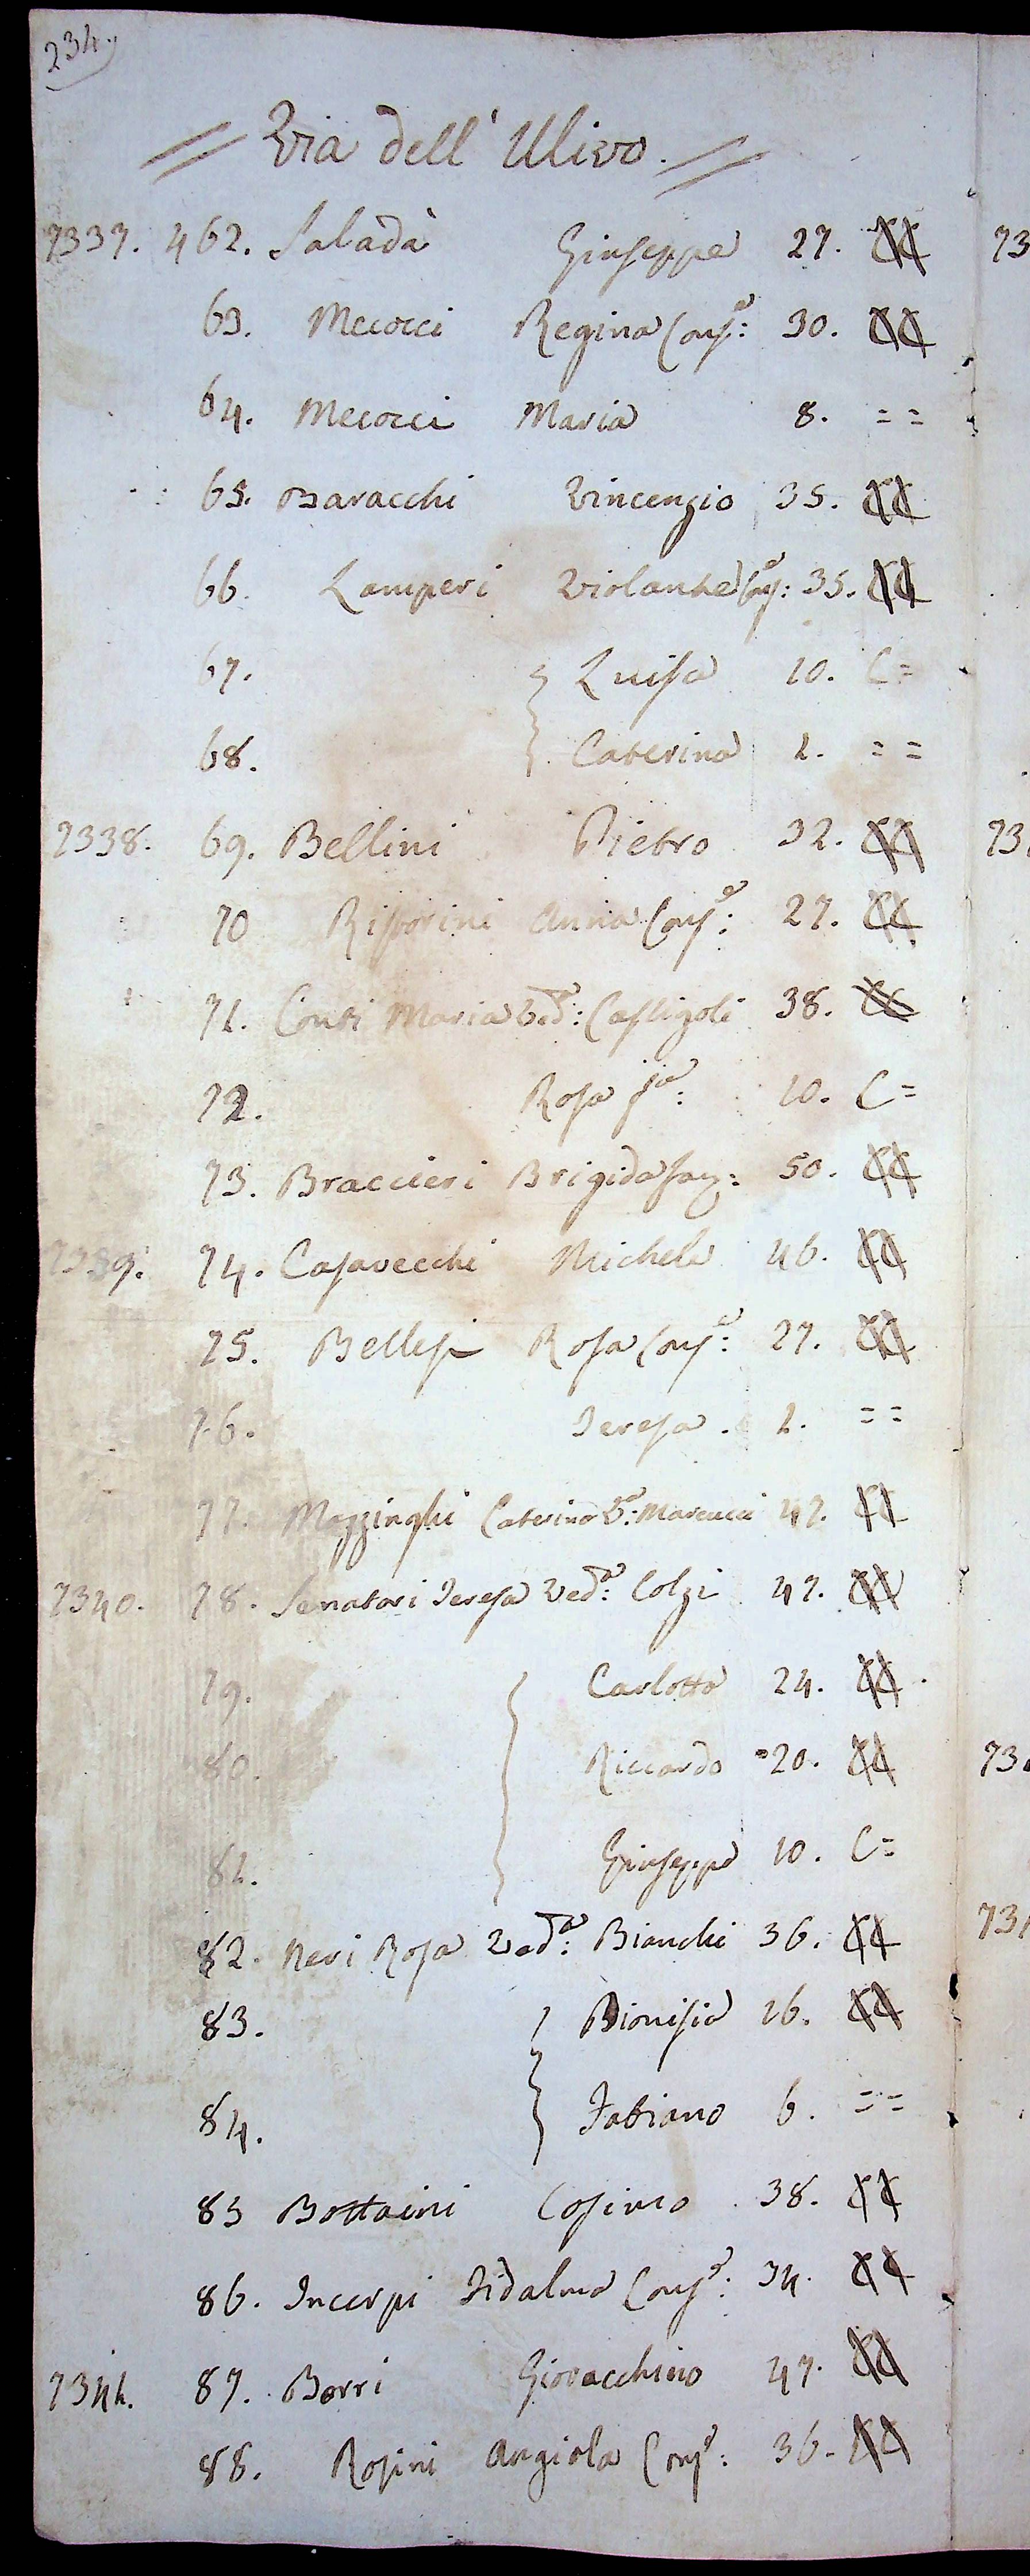 234.
= Via dell' Ulivo. =
7337. 462. Saladà Giuseppe 27. CC
63. Mecocci Regina Conse: 30. CC
64. Mecocci Maria 8. = =
65. Baracchi Vincenzio 35. CC
66. Lamperi Violante Cone: 35. CC
67. Luisa 10. C =
68. Caterina 1. = =
7338. 69. Bellini Pietro 32. CC
70 Ristorini Anna Conse: 27. CC
71. Conti Maria Veda: Castigoli 38. CC
72. Rosa fia: 10. C =
73. Braccieri Brigida 50. CC
7339. 74. Casavecchi Michele 46. CC
75. Bellesi Rosa Conse: 27. CC
76. Teresa. 1. = =
77. Mazzinghi Caterina Va: Marcucci 47. CC
7340. 78. Senatori Teresa Veda: Colzi 47. CC
79. Carlotta 24. CC
80. Riccardo 20. CC
81. Giuseppe 10. C =
82. Neri Rosa Veda: Bianchi 36. CC
83. Dionisio 16. CC
84. Fabiano 6. = =
85 Bottaini Cosimo 38. CC
86. Incerpi Fidalma Conse: 34. CC
7341. 87. Borri Giovacchino 47. CC
88. Rosini Angiola Conse: 36. CC